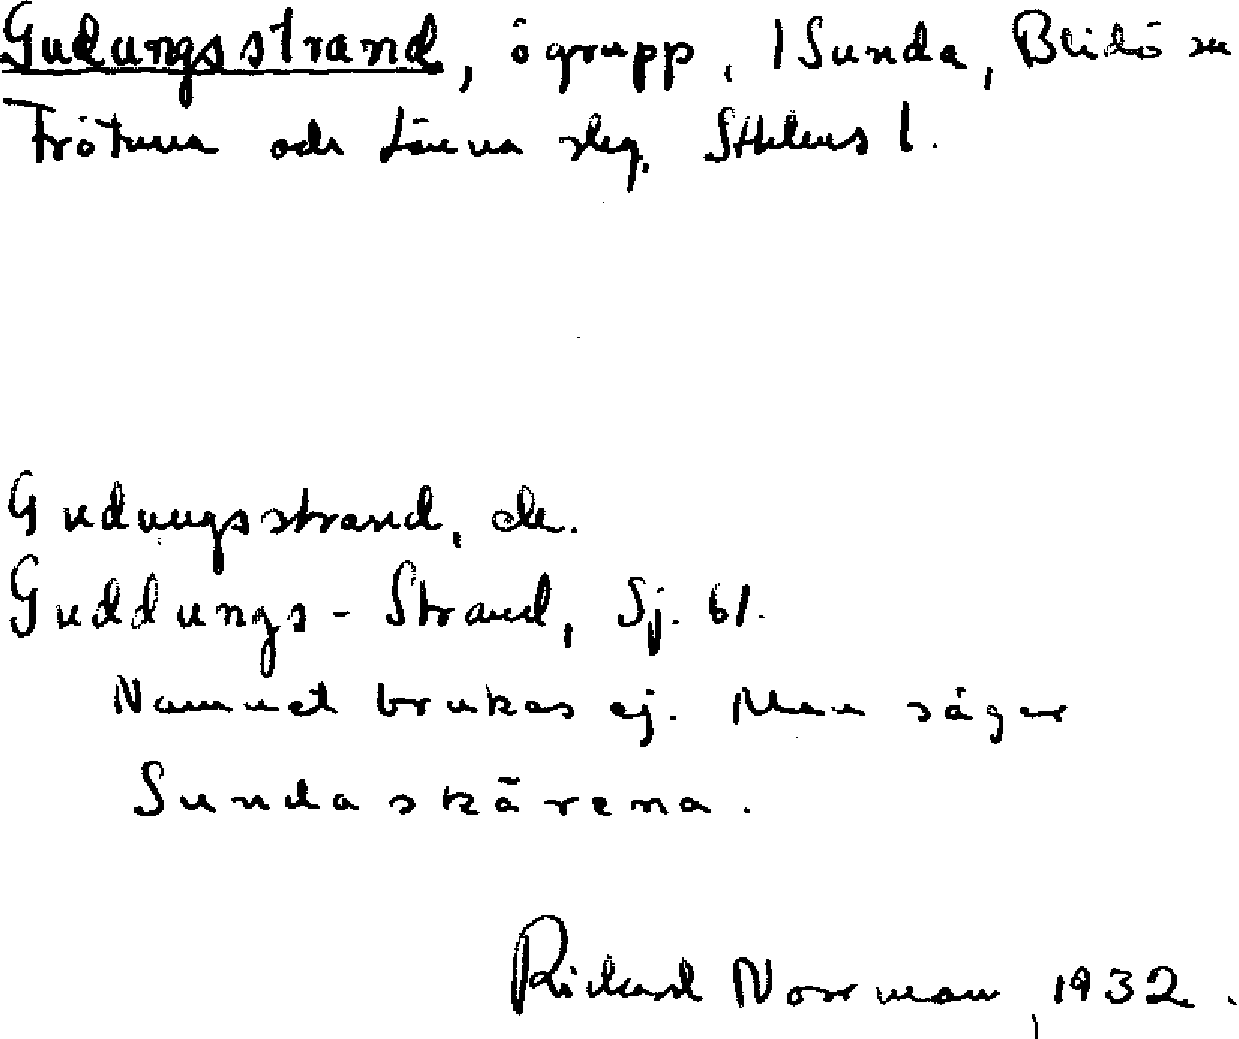 Gudungsstrand, ögrupp, I Sunda, Blidö sn
Frötuna och Länna slg, Sthlms l.
Gudungsstrand, ek.
Guddungs-Strand, Sj. 61.
Namnet brukas ej. Man säger
Sundaskärena.
Rickard Norrman, 1932.